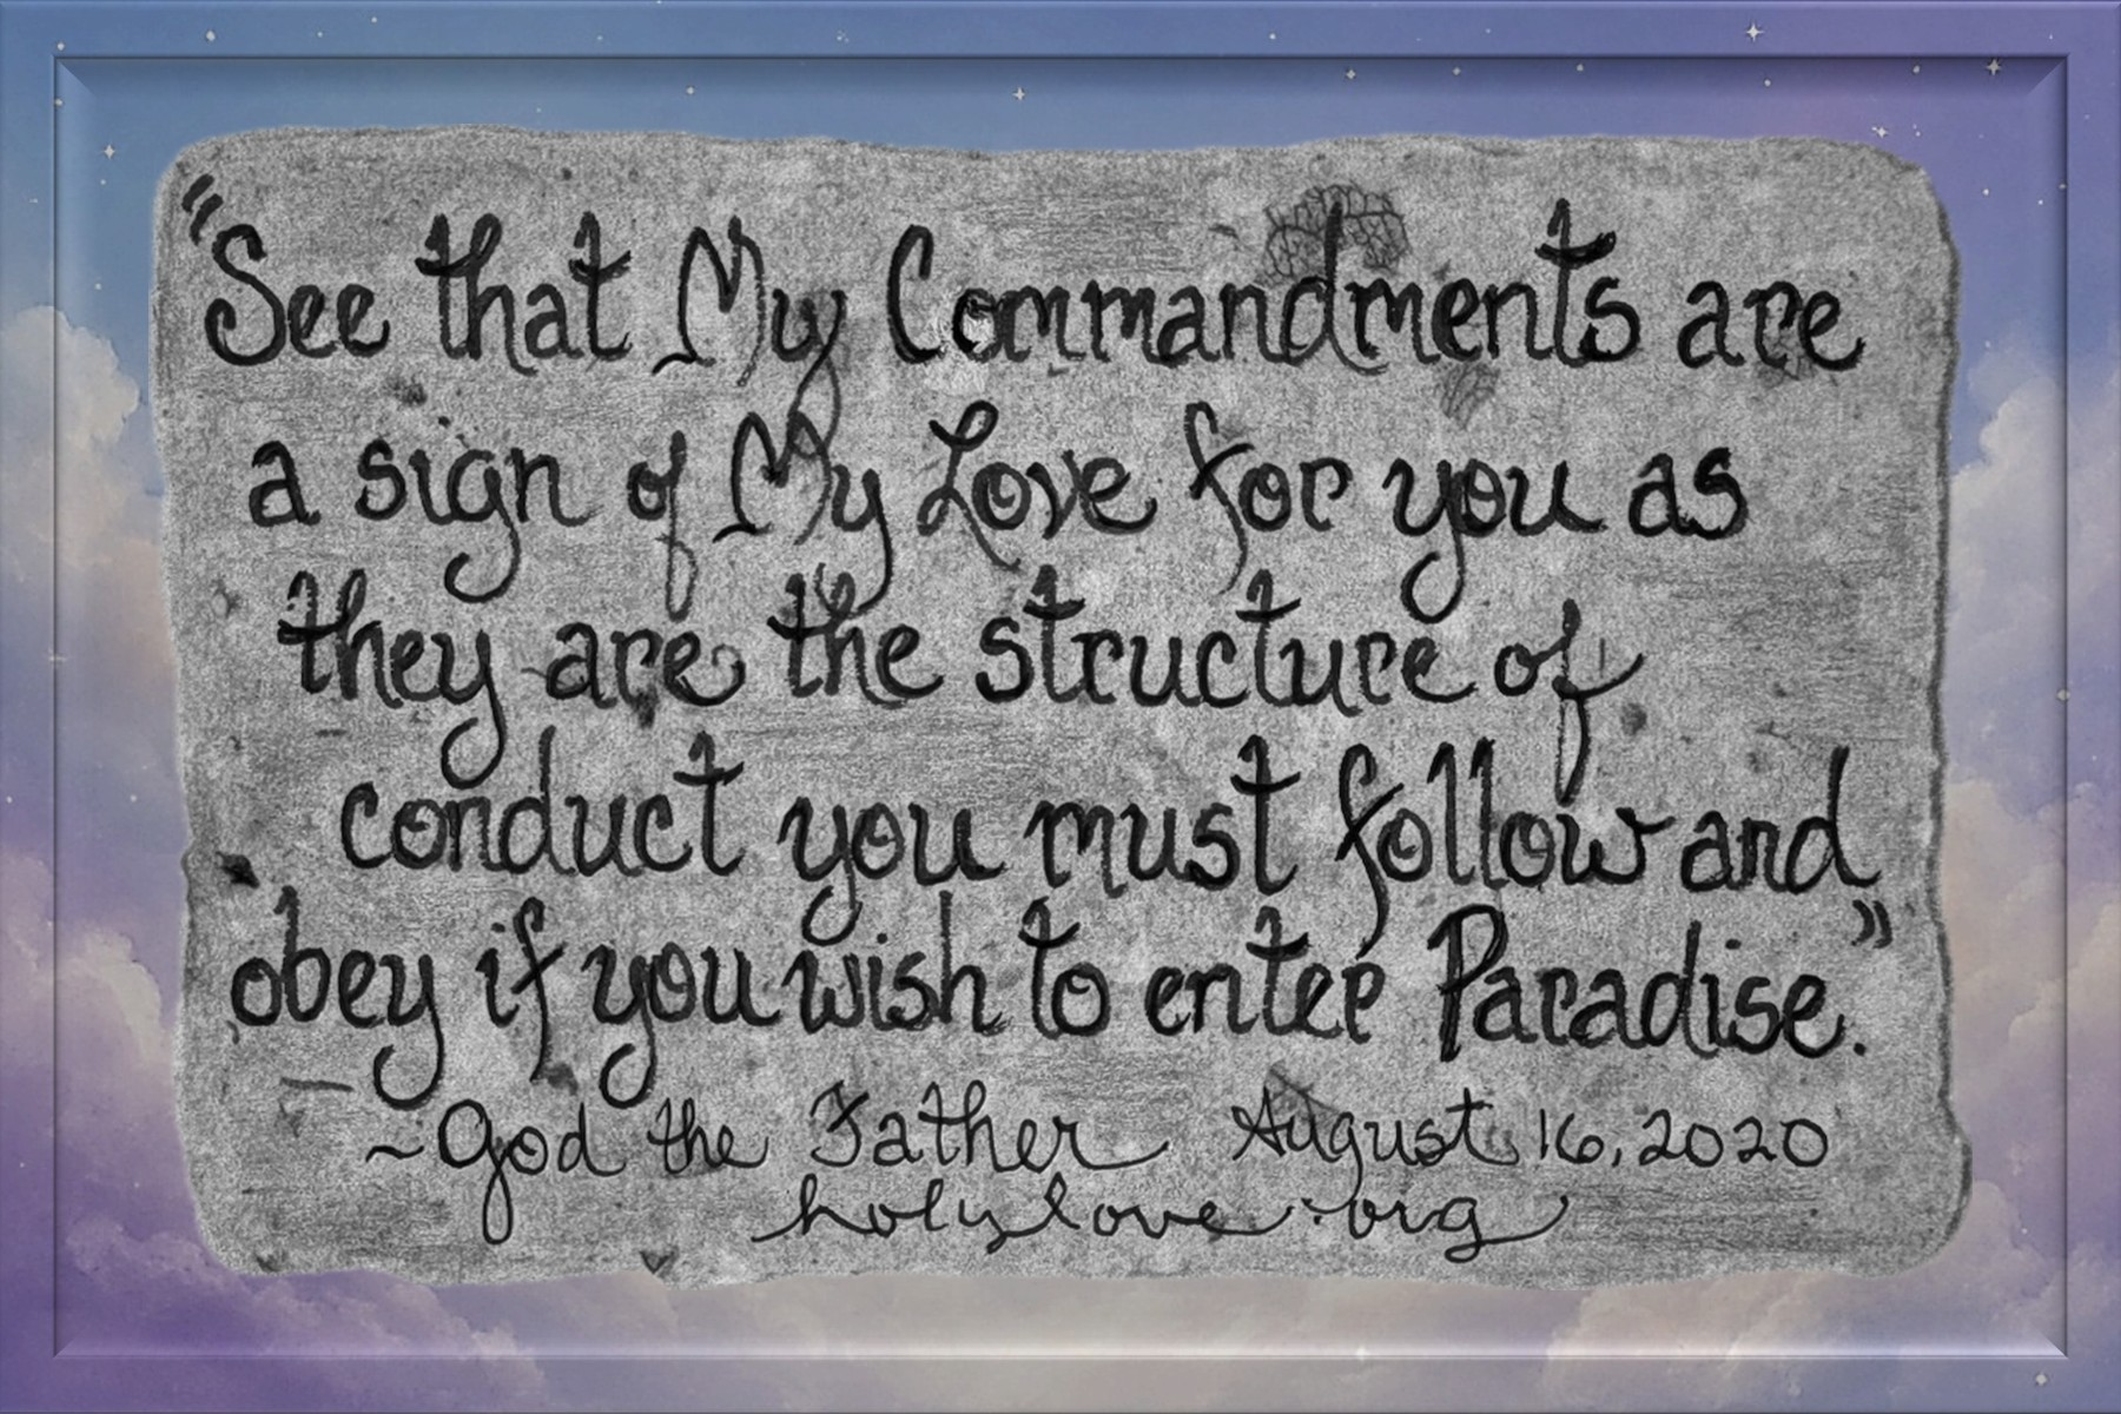 "See that My Commandments are
a sign of My Love for you as
they are the structure of
conduct you must follow and
obey if you wish to enter Paradise."
~God the Father August 16, 2020
holylove.org